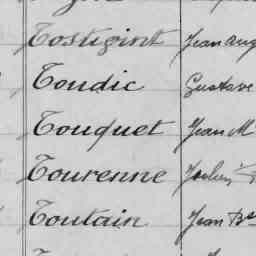 Tostivint Jean Aug
Toudic Gustave
Touquet Jean M
Tourenne
Toutain Jean Bte